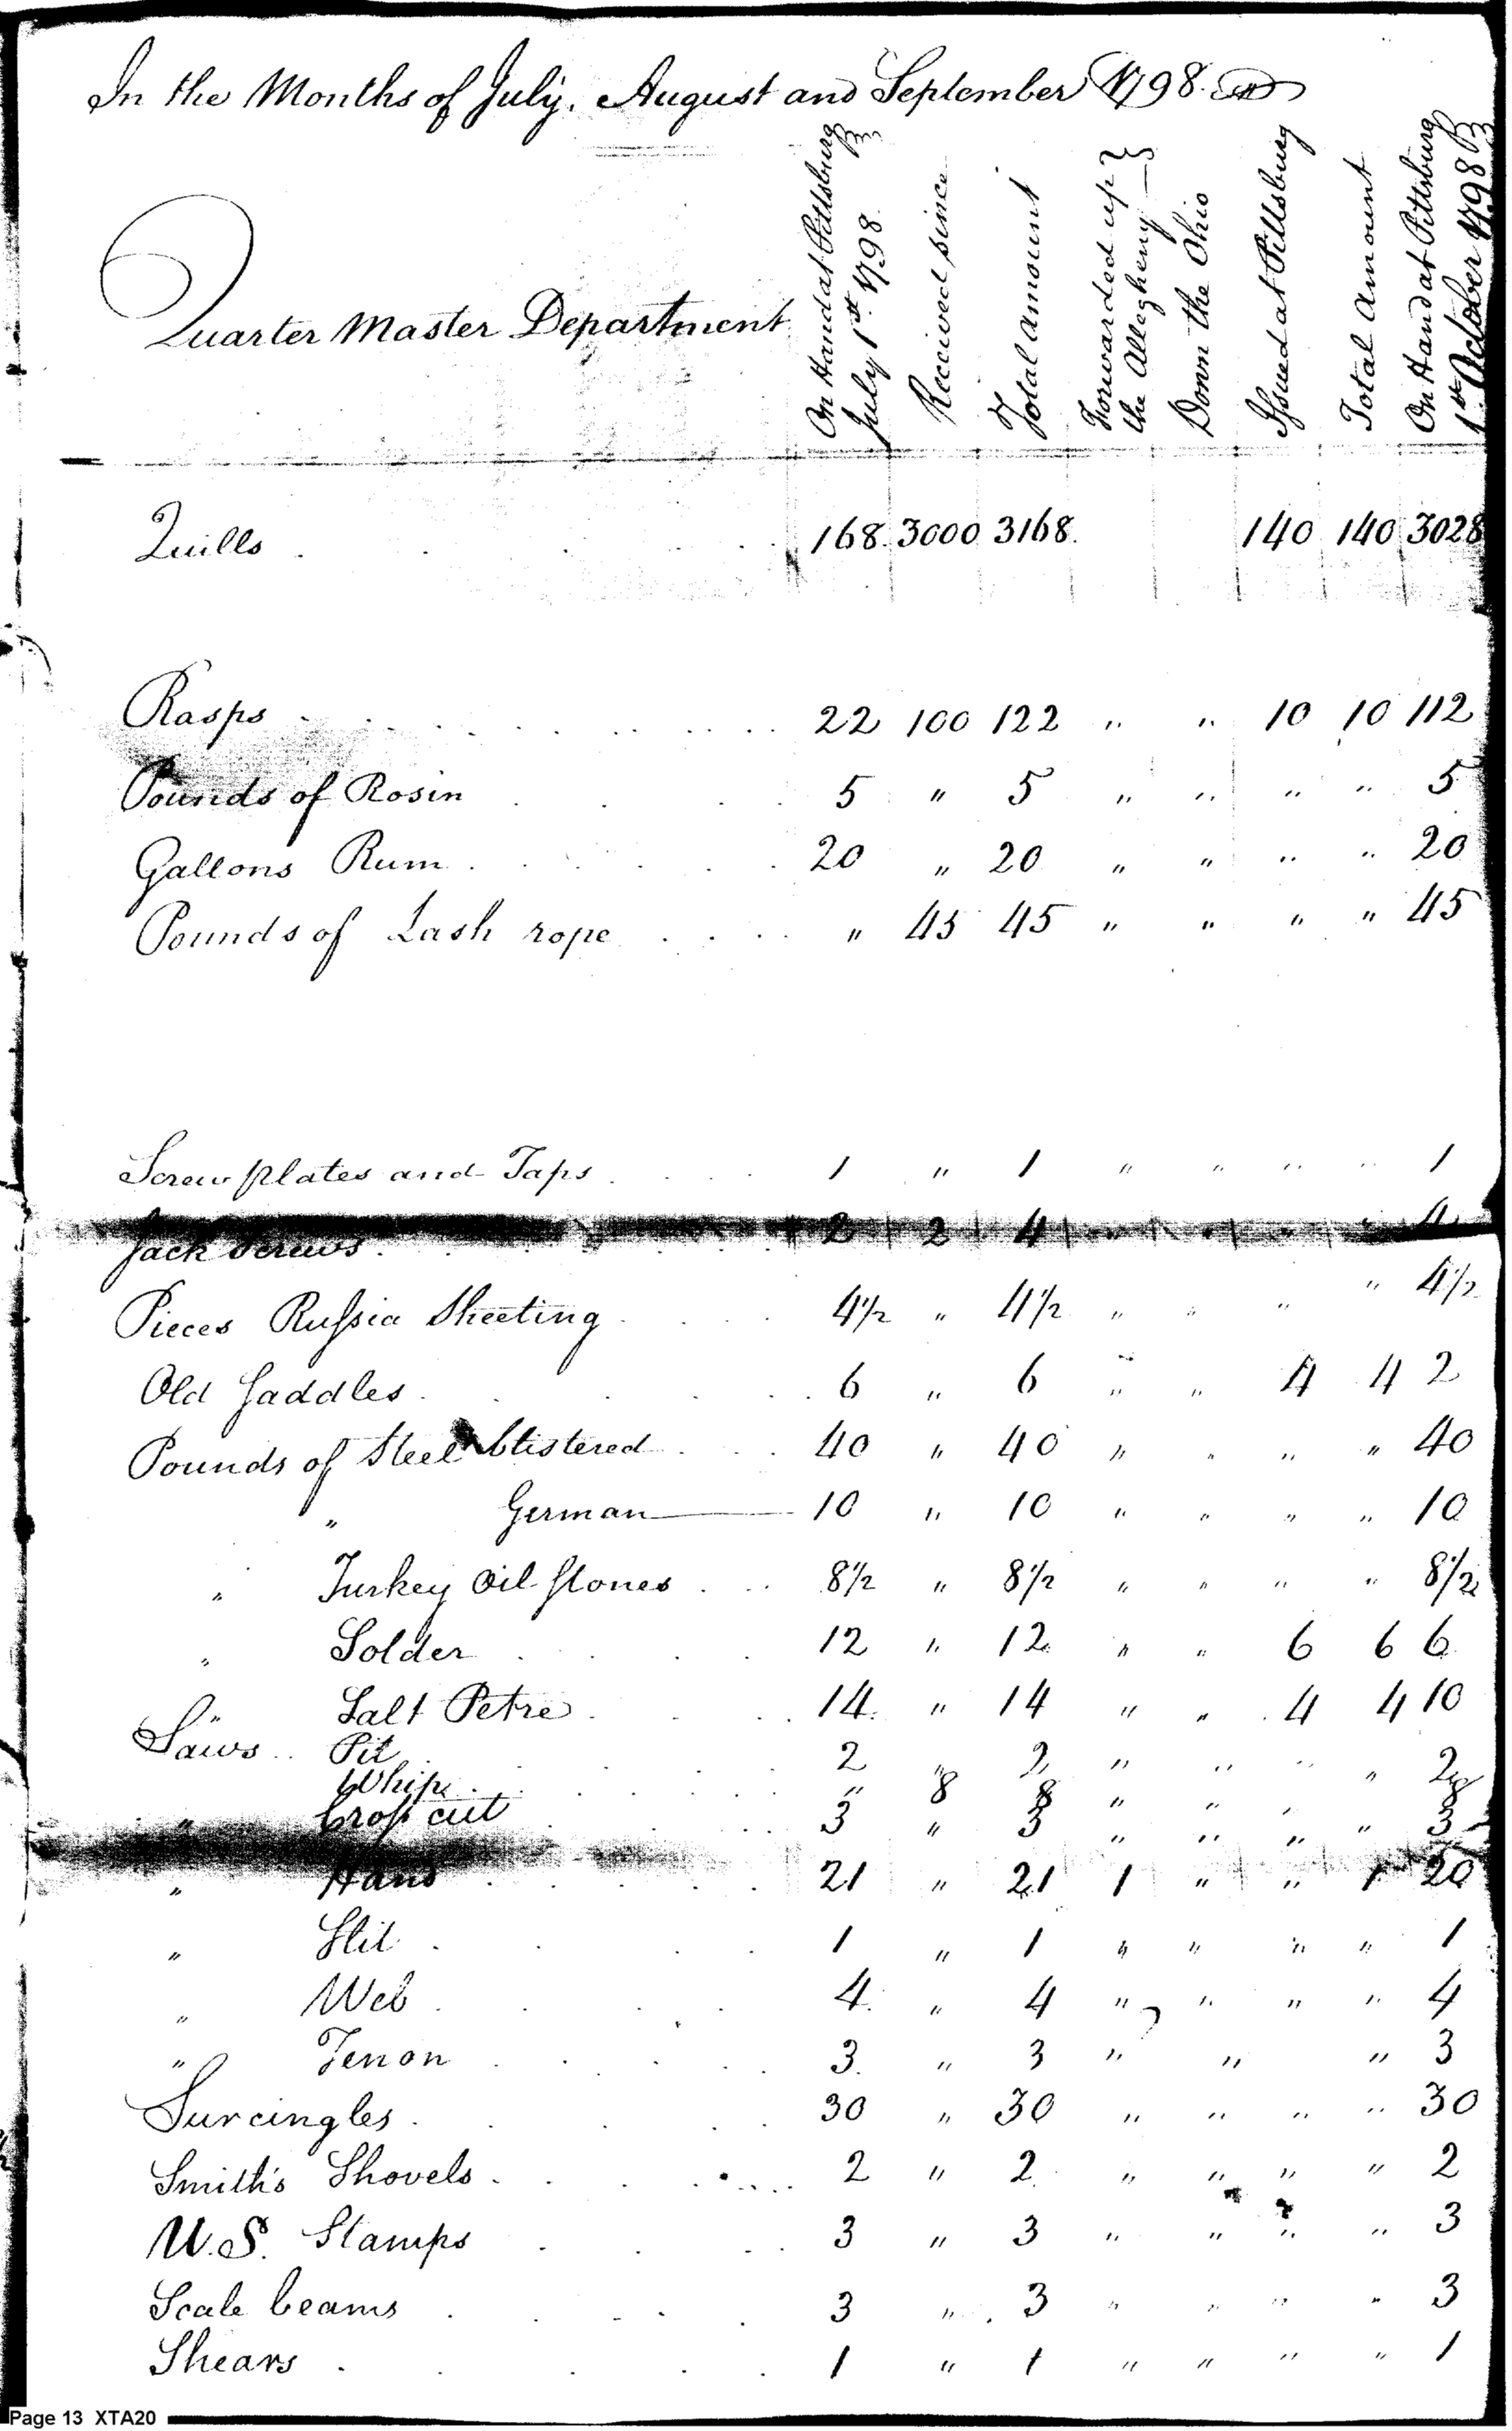 In the Months of July, August and September 1798.
Quarter Master Department
On Hand at Pittsburg
July 1st 1798.
Received since
Total amount
Forwarded up }
the Allegheny
Down the Ohio
Issued at Pittsburg
Total Amount
On Hand at Pittsburg
1st October 1798
Quills . . . . 168. 3000 3168. 140 140 3028
Rasps . . . . 22 100 122 " " 10 10 112
Pounds of Rosin . . . . 5 " 5 " " " " 5
Gallons Rum . . . . 20 " 20 " " " " 20
Pounds of Lash rope . . . . " 45 45 " " " " 45
Screw plates and Taps . . . . 1 " 1 " " " " 1
Jack Screws . . . . 2 2 4 " " " " 4
Pieces Russia Sheeting . . . . 4½ " 4½ " " " " 4½
Old Saddles . . . . 6 " 6 " " 4 4 2
Pounds of Steel blistered . . . 40 " 40 " " " " 40
" German 10 " 10 " " " " 10
" Turkey Oil Stones . . . 8½ " 8½ " " " " 8½
" Solder . . . . 12 " 12 " " 6 6 6
" Salt Petre . . . . 14 " 14 " " 4 4 10
Saws . . Pit . . . . 2 " 2 " " " " 2
Whip . . . . " 8 8 " " " " 8
" Cross cut . . . . 3 " 3 " " " " 3
" Hand . . . . 21 " 21 1 " " 1 20
" Slit . . . . 1 " 1 " " " " 1
" Web . . . . 4 " 4 " " " " 4
" Tenon . . . . 3 " 3 " " " 3
Surcingles . . . . 30 " 30 " " " " 30
Smith's Shovels . . . . 2 " 2 " " " " 2
U.S. Stamps . . . . 3 " 3 " " " " 3
Scale beams . . . . 3 " 3 " " " " 3
Shears . . . . 1 " 1 " " " " 1
Page 13 XTA20